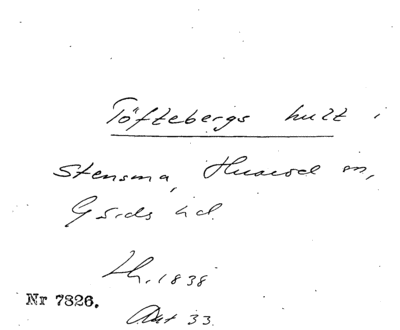 Töftebergs hult i
Stensma, Hvarsd sn,
Gäsds hd.
Lh. 1838
Nr 7826.
Akt 33.